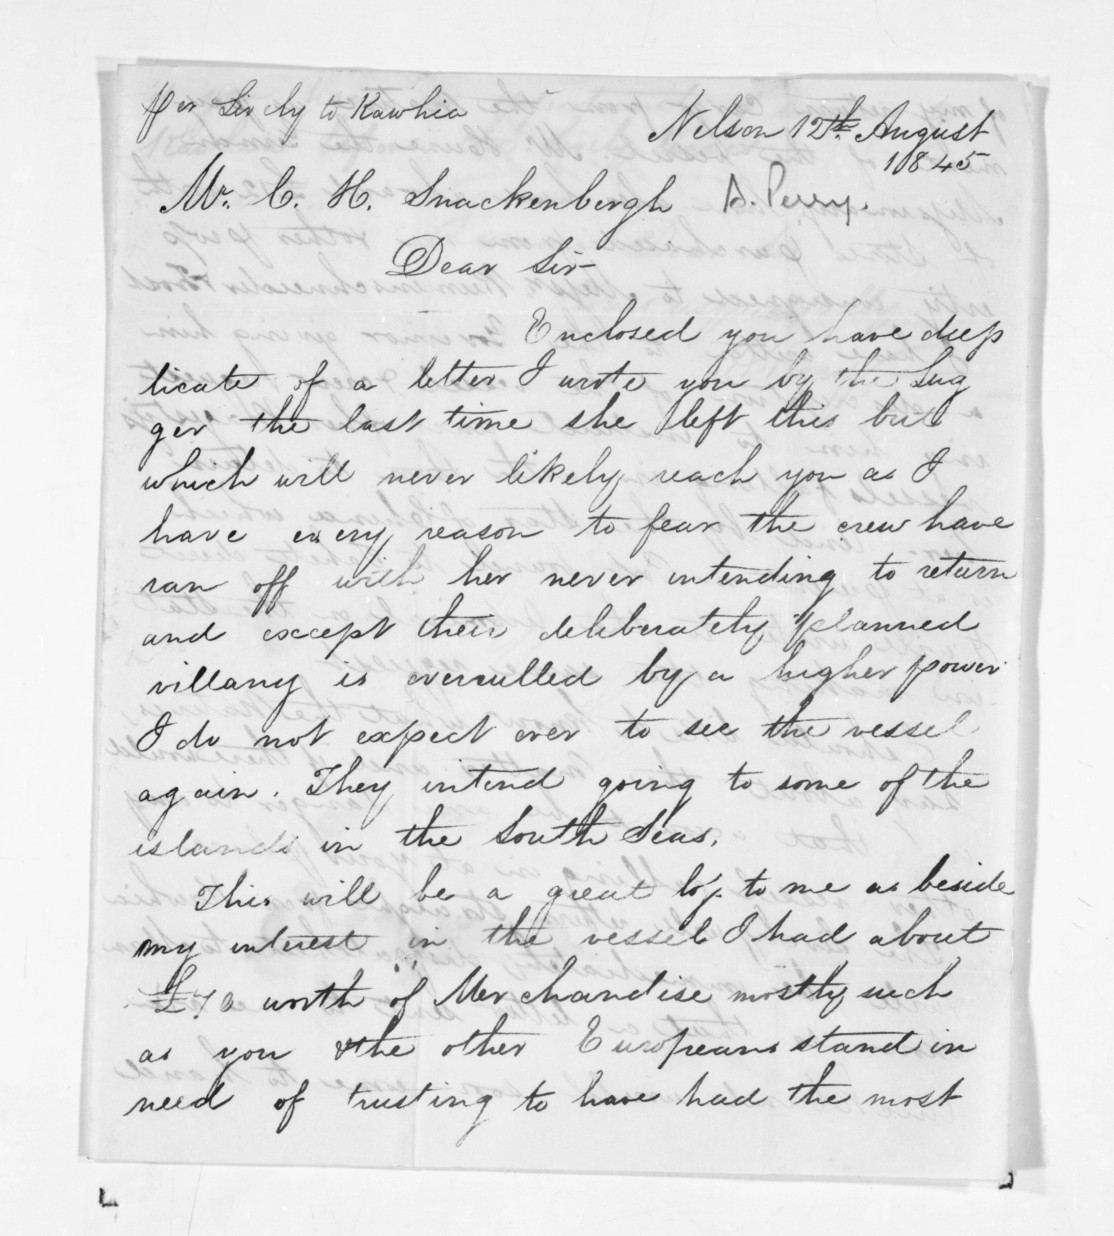 per Sir chy to Kawhia
Nelson 12th August
1845
Mr. C. H. Snackenbergh A. Perry.
Dear Sir-
Enclosed you have deep
licate of a letter I wrote you by the Lug
ger the last time she left this but
which will never likely reach you as I
have every reason to fear the crew have
ran off with her never intending to return
and except their deliberately planned
villany is overrulled by a higher power
I do not expect ever to see the vessel
again. They intend going to some of the
islands in the South Seas.
This will be a great loss to me as beside
my interest in the vessel I had about
worth of Merchandise mostly such
as you & the other Europeans stand in
need of trusting to have had the most